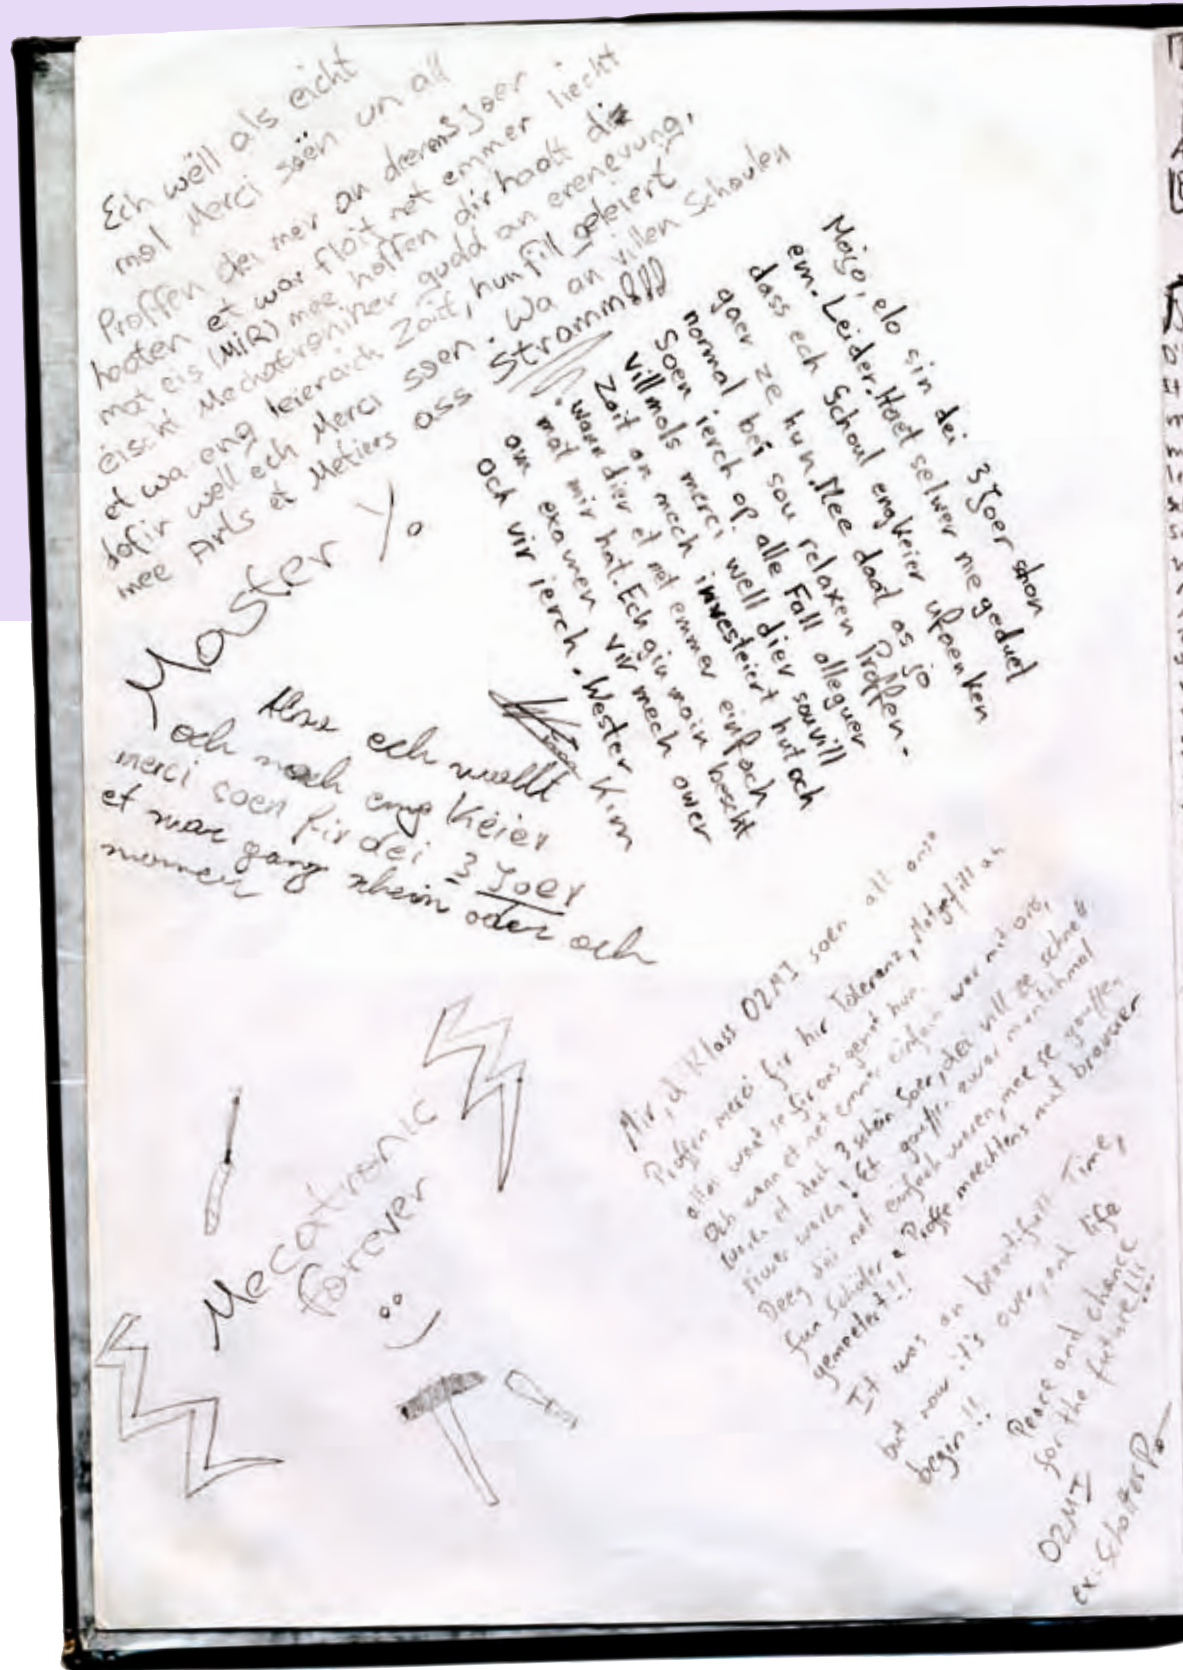 Ech wëll als eicht
mol Merci soën un all
Proffen déi mer an dierens Joer
haaten et war flöit net emmer liecht
mat eis (MiR) mee hoffen dir haott die
éischt Mechatroniker gudd an erenevung,
et wa eng leieraich Zäit, hun fill geleiert
dofir well ech Merci soen. Wa an villen Schoulen
mee Arts et Metiers ass Stramm!!!
Master Y.
Moiso, elo sin dei 3 Joer schon
em. Leider. Haet selwer nie geduet
dass ech Schoul engkeier upaenken
gaer ze hun. Mee daat as jo
normal bei sou relaxen Proffen.
Soen ierch op alle Fall alleguer
villmols merci well dier souvill
Zait an mech investeiert hut och
wann dier et net emmer einfach
mat mir hat. Ech gin main bescht
am examen vir mech awer
och vir ierch. Wester
Kim
Also ech wollt
och nach eng Keier
merci soen fir dei 3 Joer
et war ganz schein oder och
Mir, d'Klass O2MI soen all ons
Proffen merci fir hir Toleranz, Matgefill an
alles waat se fir ons gemt hun.
Och wann et net emmer einfach war mit ons,
waren et dach 3 schéin Joer, dei vill ze schnell
riwer waren! Et gouffen zwar mentchmal
Deeg dei net einfach waren, mee se gouffen
fun Schüler a Proffe meechtens mat bravour
gemeetert!!
It was an beautifull Time,
but now it's over, and life
begin!!
Peace and chance
for the future!!!
O2MI
Mecatronic
forever